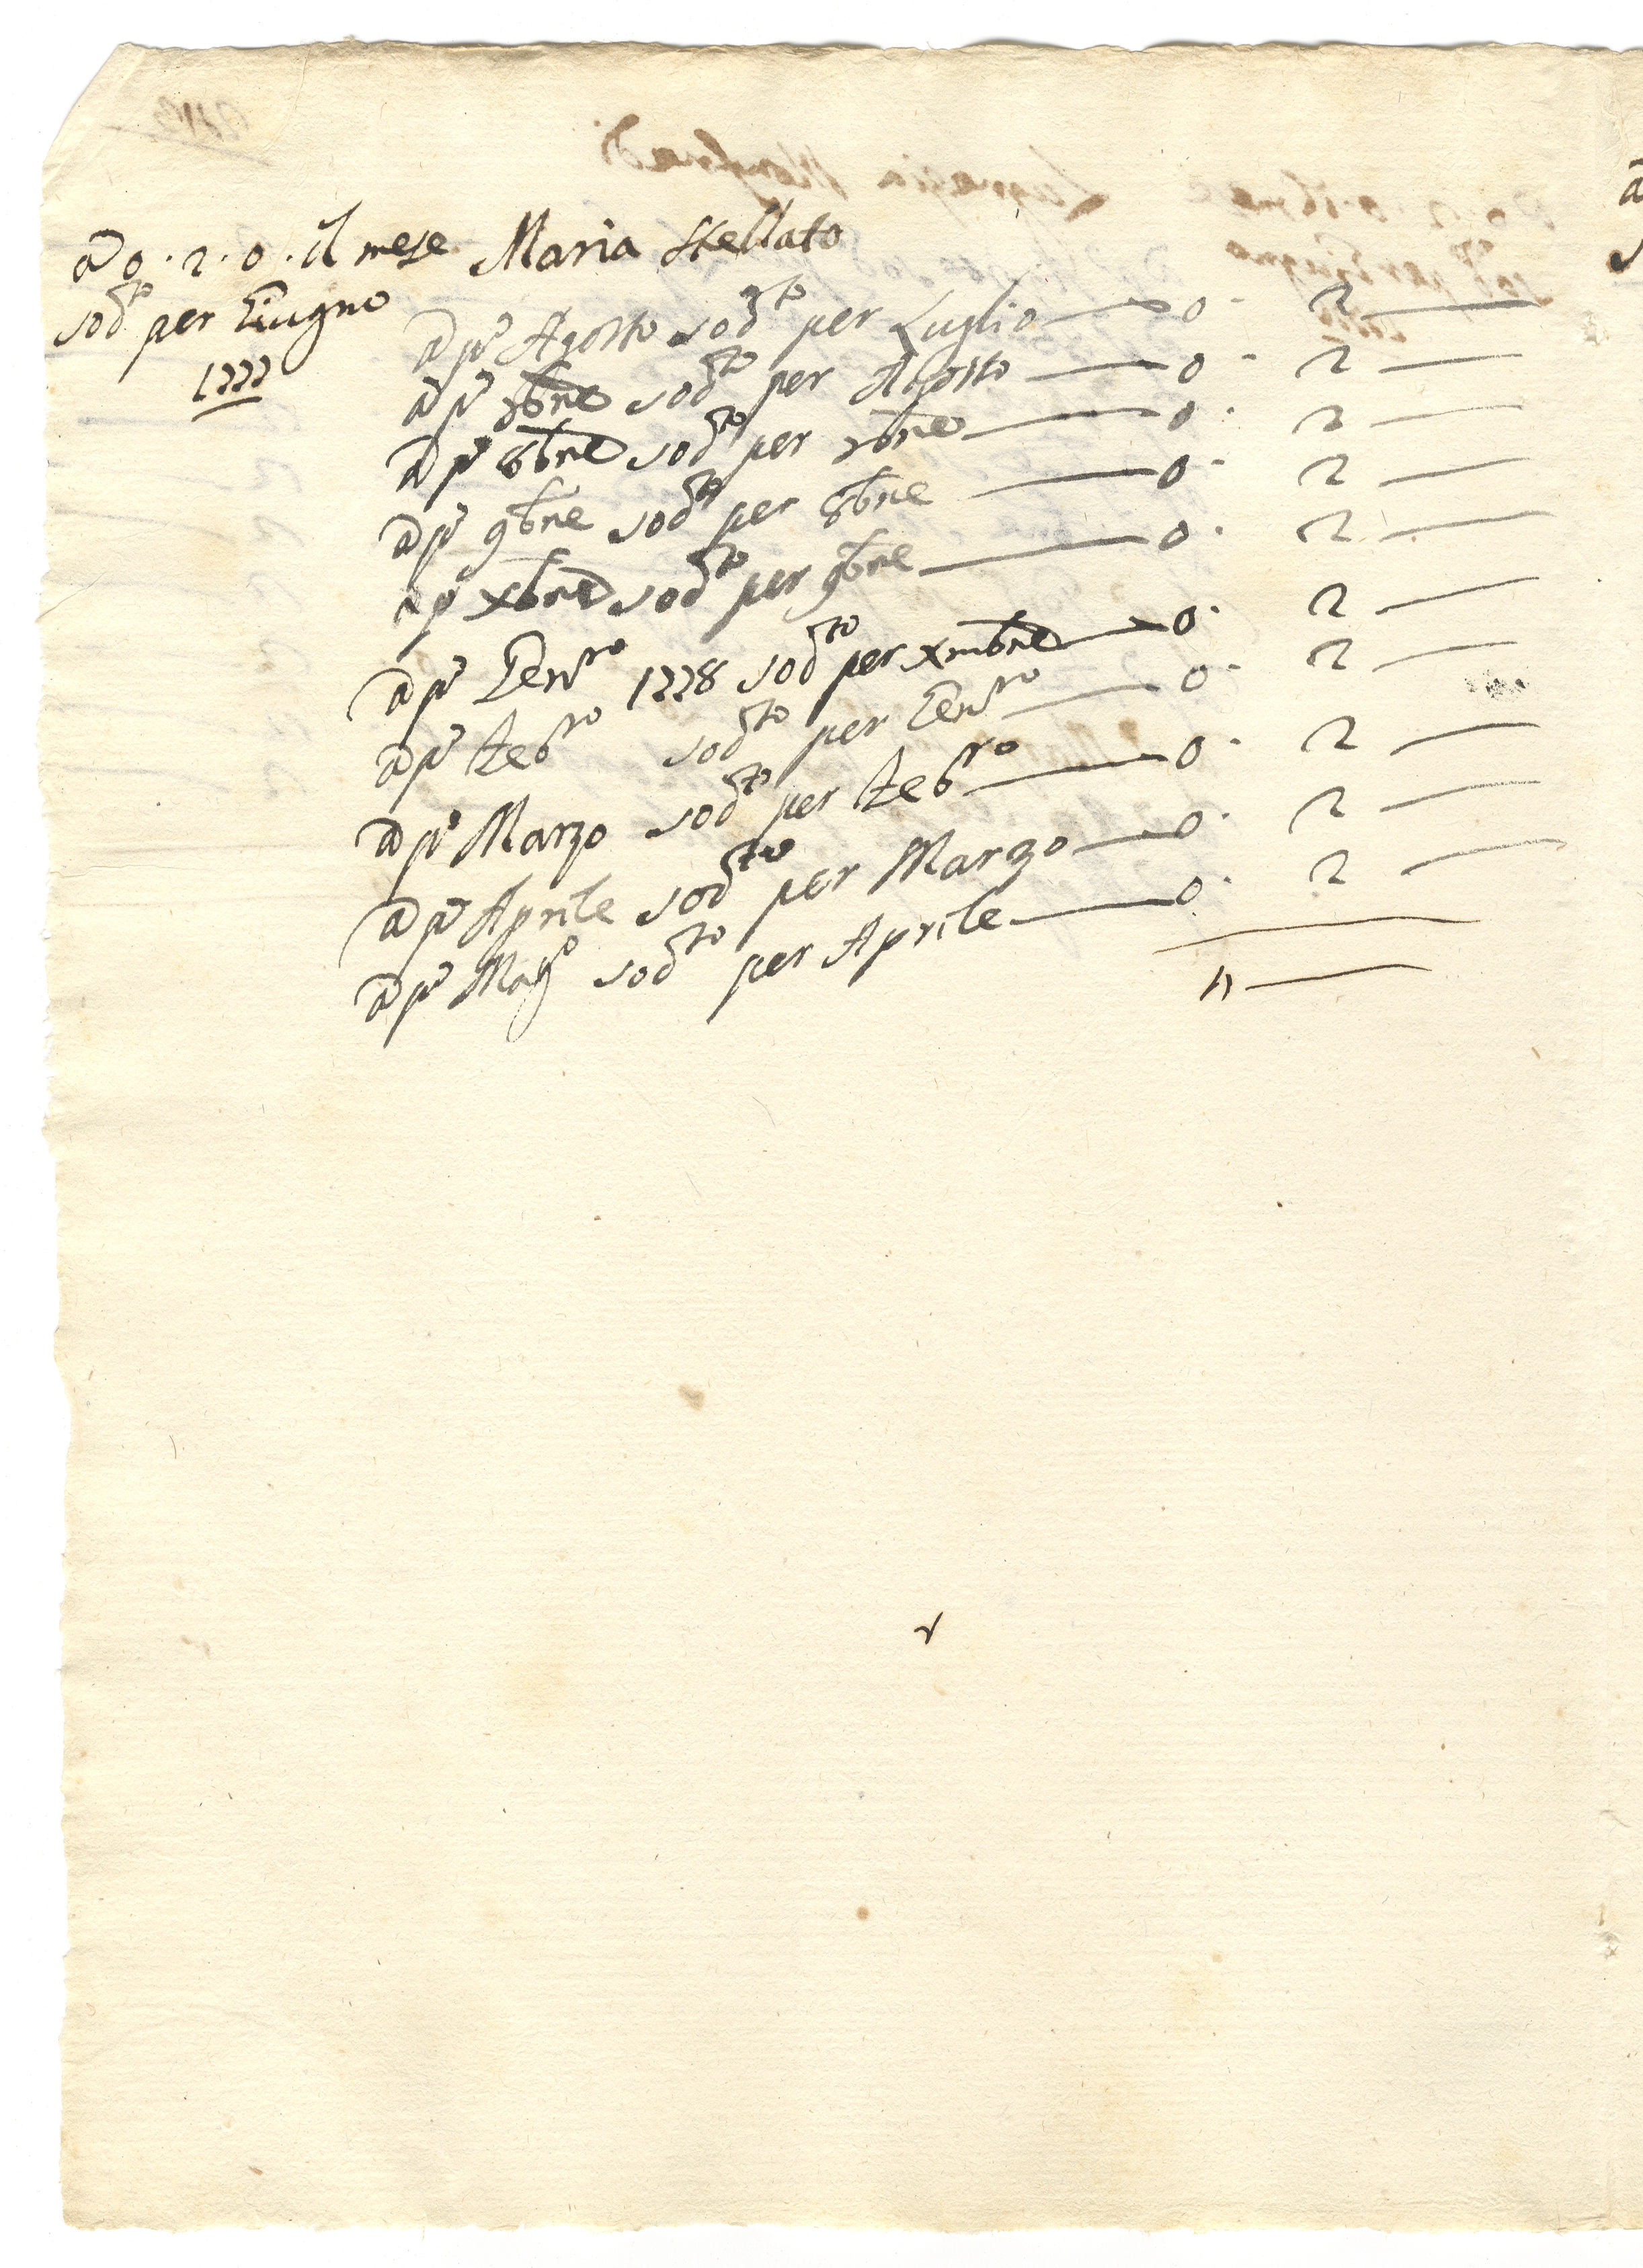 a 0.2.0. il mese Maria Stellato
sod.to per Giugno
1777
a p.o Agosto sod.to per Luglio — 0. 2 —
a p.o 7bre sod.to per Agosto — 0. 2 —
a p.o 8bre sod.to per 7bre — 0. 2 —
a p.o 9bre sod.to per 8bre — 0. 2 —
a p.o xbre sod.to per 9bre — 0. 2 —
a p.o Gen.ro 1778 sod.to per xmbre — 0. 2 —
a p.o Feb.ro sod.to per Gen.ro — 0. 2 —
a p.o Marzo sod.to per Feb.ro — 0. 2 —
a p.o Aprile sod.to per Marzo — 0. 2 —
a p.o Mag.o sod.to per Aprile — 0. 2 —